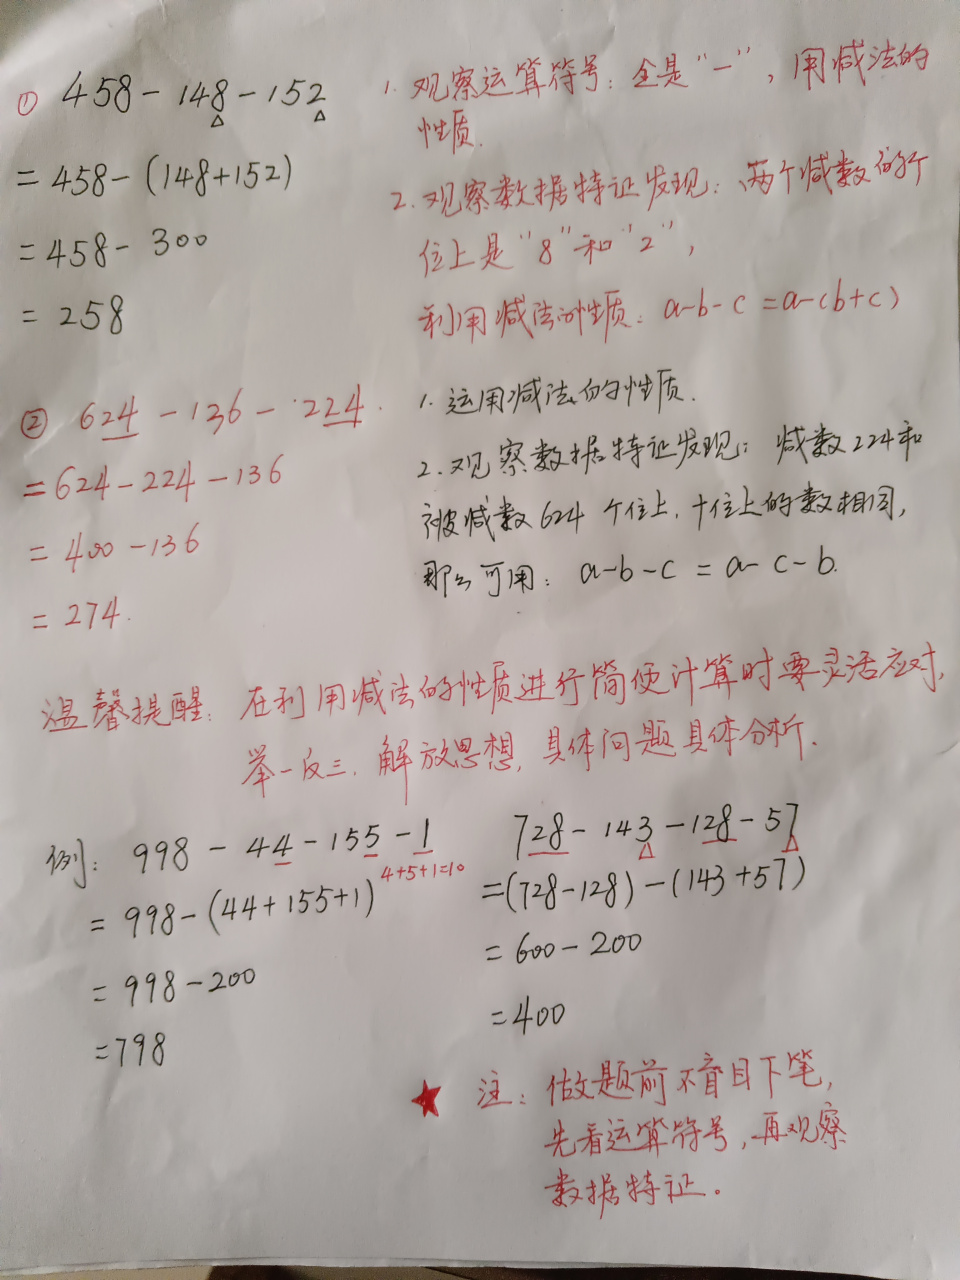 ① 458-148-152
=458-(148+152)
=458-300
=258
1. 观察运算符号：全是“-”，用减法的
性质.
2. 观察数据特证发现：两个减数的个
位上是“8”和“2”，
利用减法的性质：a-b-c=a-(b+c)
② 624-136-224.
=624-224-136
=400-136
=274.
1. 运用减法的性质.
2. 观察数据特证发现：减数224和
被减数624个位上，十位上的数相同，
那么可用：a-b-c=a-c-b.
温馨提醒：在利用减法的性质进行简便计算时要灵活应对，
举一反三，解放思想，具体问题具体分析.
例：998-44-155-1
4+5+1=10
=998-(44+155+1)
=998-200
=798
728-143-128-57
=(728-128)-(143+57)
=600-200
=400
★ 注：做题前不盲目下笔，
先看运算符号，再观察
数据特证。